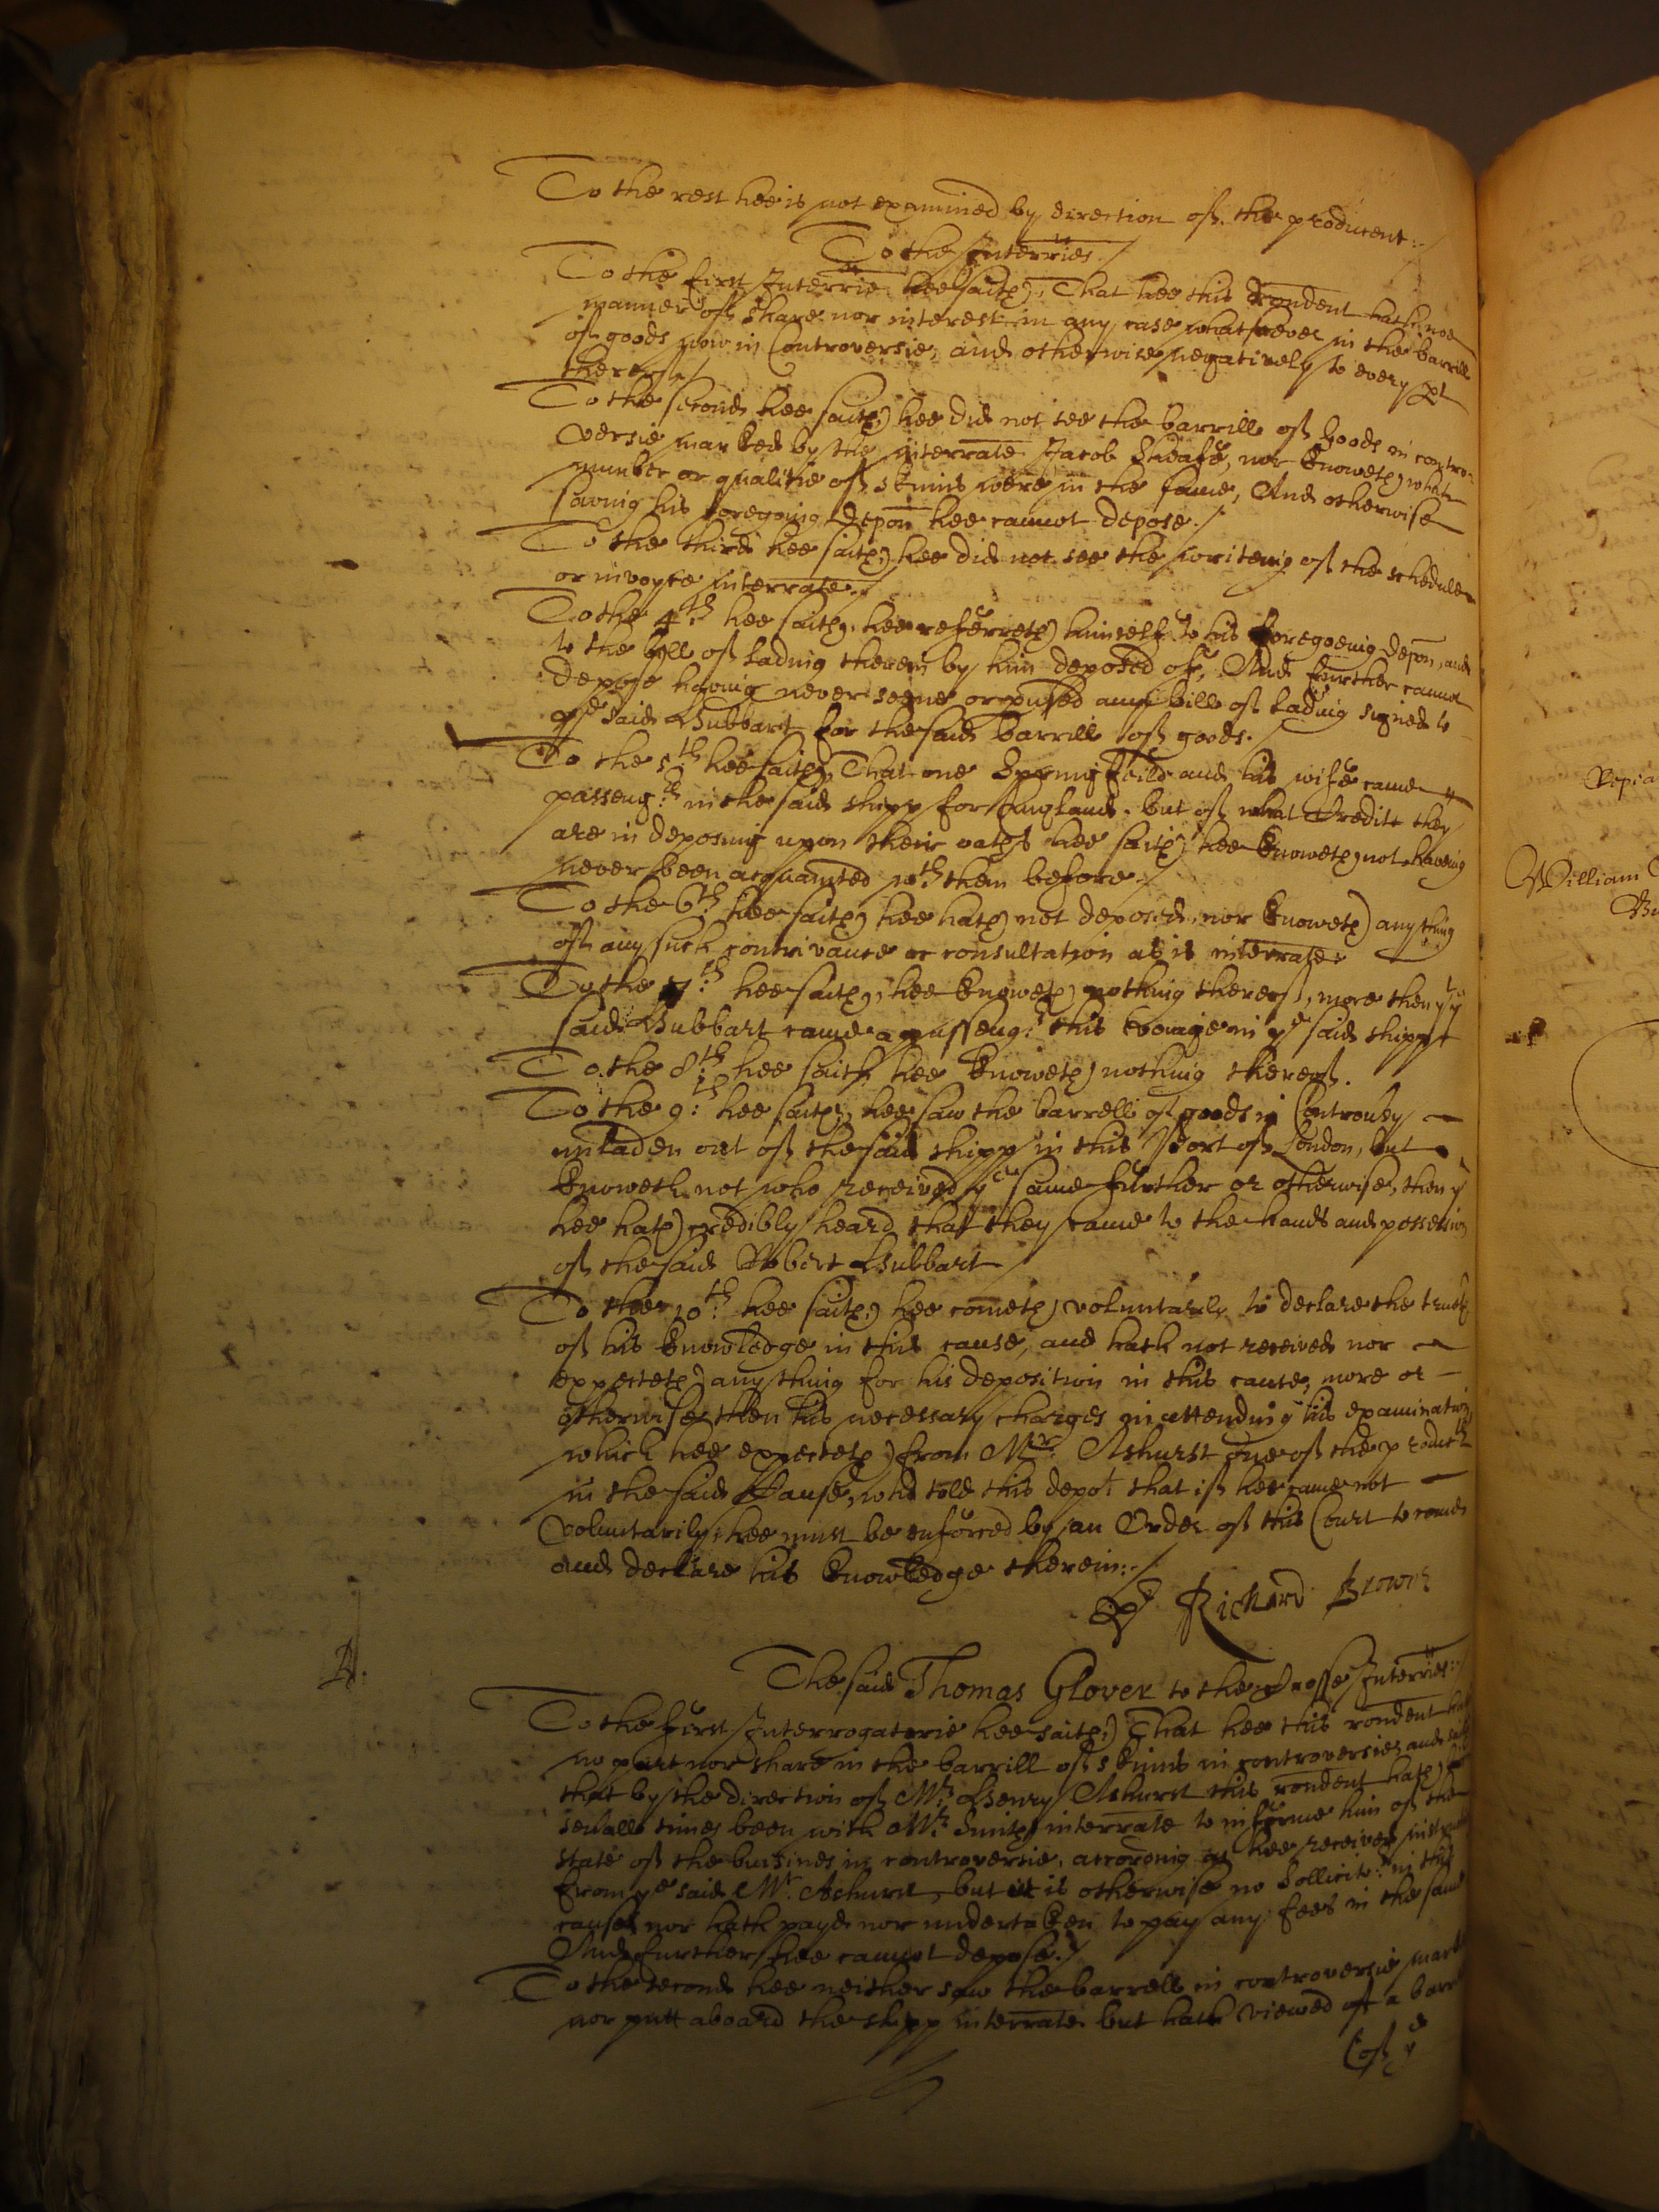 To the rest hee is not examined by direction of the producent:-/
To the Interries./
To the first Interrie hee saith, That hee this rondent hath noe
manner of share nor interest in any case whatsoever in the barrill
of goods now in Controversie, and otherwise negatively to every pt
thereof./
To the second hee saith, hee did not see the barrill of goods in contro-
versie marked by the interrate Jacob Sheafe, nor knoweth what
number or qualitie of skinns were in the same, And otherwise
saving his foregoing depon hee cannot depose./
To the third hee saith, hee did not see the writeing of the schedule
or invoyce interrate./
To the 4th: hee saith, hee referreth himself to his foregoeing depon, and
to the bill of lading therein by him deposed of, And further cannot
depose having never seene or pused any bill of lading signed to
ye said Hubbart for the said barrill of goods./
To the 5th hee saith, That one Springfeild and his wife came
passengrs in the said shipp for England, but of what Credite they
are in deposing upon their oathes hee saith hee knoweth not having
never been acquainted wth them before./
To the 6th hee saith hee hath not deposed, nor knoweth any thing
of any such contrivance or consultation as is interrate
To the 7th: hee saith, hee knoweth nothing thereof, more then yt ye
said Hubbart came a passengr: this voiage in ye said shipp
To the 8th hee saith hee knoweth nothing thereof.
To the 9:th hee saith, hee saw the barrell of goods in Controvsy
unladen out of the said shipp in this Port of London, but
knoweth not who received ye same further or otherwise, then yt
hee hath credibly heard that they came to the hands and possession
of the said Robert Hubbart
To the 10th: hee saith, hee cometh voluntarily to declare the truth
of his knowledge in this cause, and hath not received nor
expecteth any thing for his deposition in this cause, more or
otherwise then his necessary charges in attending his examination
which hee expecteth from Mr: Ashurst one of the products
in the said Cause, who told this depot that if hee came not
voluntarily, hee must be enforced by an Order of this Court to come
and declare his knowledge therein:-/
Richard Browne
The said Thomas Glover to the Crosse Interries:-/
To the first Interrogatorie hee saith, That hee this rondent hath
no part nor share in the barrill of skinns in controversie, and
that by the direction of Mr: Henry Ashurst this rondent hath
severall times been with Mr: Smith interrate to informe him of the
state of the buisines in controversie, according as hee received
from ye said Mr. Ashurst, but is otherwise no Sollicitor: in this
cause nor hath payd nor undertaken to pay any fees in the same
And further hee cannot depose./
To the second hee neither saw the barrell in controversie
nor putt aboard the shipp interrate but hath viewed a
(of ye
Repia
William